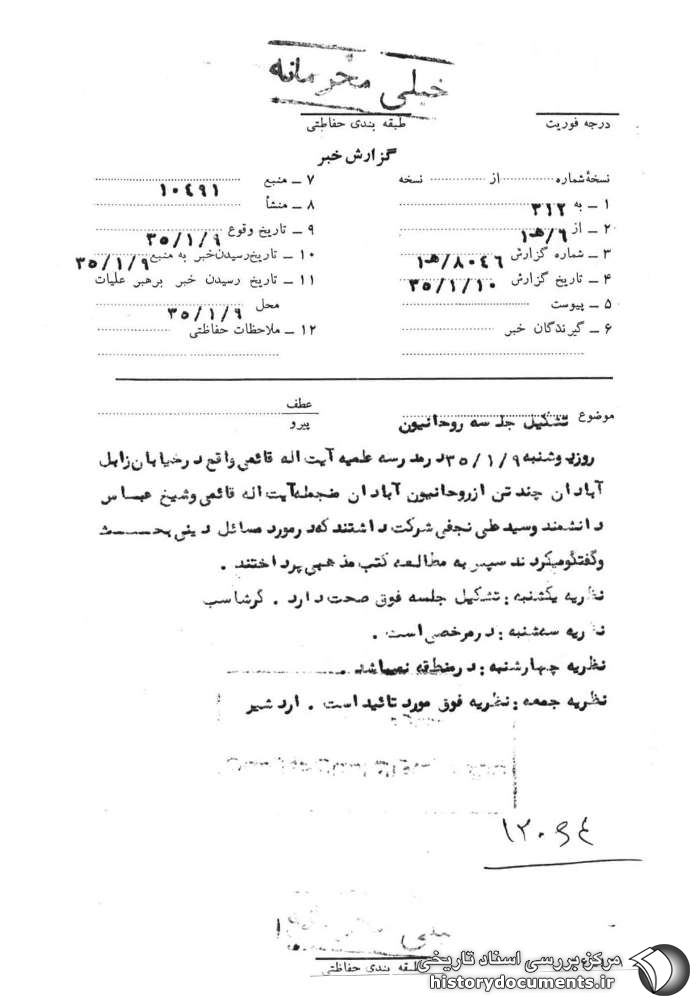 خیلی محرمانه
درجه فوریت
طبقه بندی حفاظتی
گزارش خبر
نسخهٔ شماره .......... از .......... نسخه
۱ ــ به ۳۱۲
۲ ــ از ۶/هـ۱
۳ ــ شماره گزارش ۸۰۴۶/هـ۱
۴ ــ تاریخ گزارش ۳۵/۱/۱۰
۵ ــ پیوست
۶ ــ گیرندگان خبر
۷ ــ منبع ۱۰۴۹۱
۸ ــ منشأ
۹ ــ تاریخ وقوع ۳۵/۱/۹
۱۰ ــ تاریخ رسیدن خبر به منبع ۳۵/۱/۹
۱۱ ــ تاریخ رسیدن خبر برهبر عملیات
محل ۳۵/۱/۹
۱۲ ــ ملاحظات حفاظتی
موضوع تشکیل جلسه روحانیون
عطف
پیرو
روز دوشنبه ۳۵/۱/۹ در مدرسه علمیه آیت اله قائمی واقع در خیابان زابل
آبادان چند تن از روحانیون آبادان منجمله آیت اله قائمی و شیخ عباس
دانشمند و سید علی نجفی شرکت داشتند که در مورد مسائل دینی بحث
و گفتگو میکردند سپس به مطالعه کتب مذهبی پرداختند .
نظریه یکشنبه : تشکیل جلسه فوق صحت دارد . گرشاسب
نظریه سه شنبه : در مرخصی است .
نظریه چهارشنبه : در منطقه نمیباشد .
نظریه جمعه : نظریه فوق مورد تائید است . اردشیر
طبقه بندی حفاظتی
مرکز بررسی اسناد تاریخی
historydocuments.ir